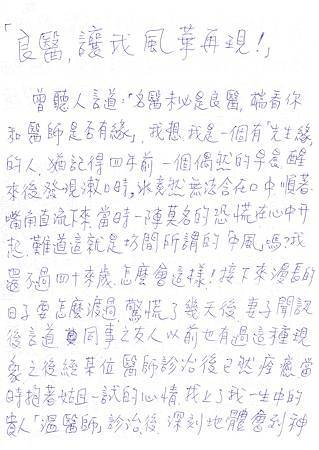 「良醫,讓我風華再現!」
曾聽人言道:「名醫未必是良醫,端看你
和醫師是否有緣」,我想,我是一個有「先生緣」
的人,猶記得四年前一個偶然的早晨醒
來後發現漱口時,水竟然無法含在口中,順著
嘴角直流下來,當時一陣莫名的恐慌在心中升
起,難道這就是坊間所謂的「中風」嗎?我
還不過四十來歲,怎麼會這樣!接下來漫長的
日子要怎麼渡過,驚慌了幾天後,妻子聞訊
後言道 同事之友人以前也有過這種現
象之後經某位醫師診治後已然痊癒當
時抱著姑且一試的心情,找上了我一生中的
貴人「溫醫師」診治後,深刻地體會到神